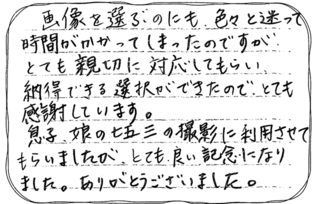 画像を選ぶのにも、色々と迷って
時間がかかってしまったのですが、
とても親切に対応してもらい
納得できる選択ができたので、とても
感謝しています。
息子、娘の七五三の撮影に利用させて
もらいましたが、とても良い記念になり
ました。ありがとうございました。